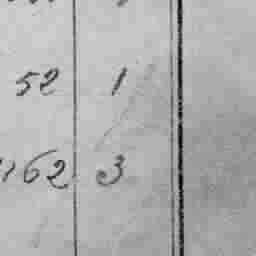 52 1
162 3